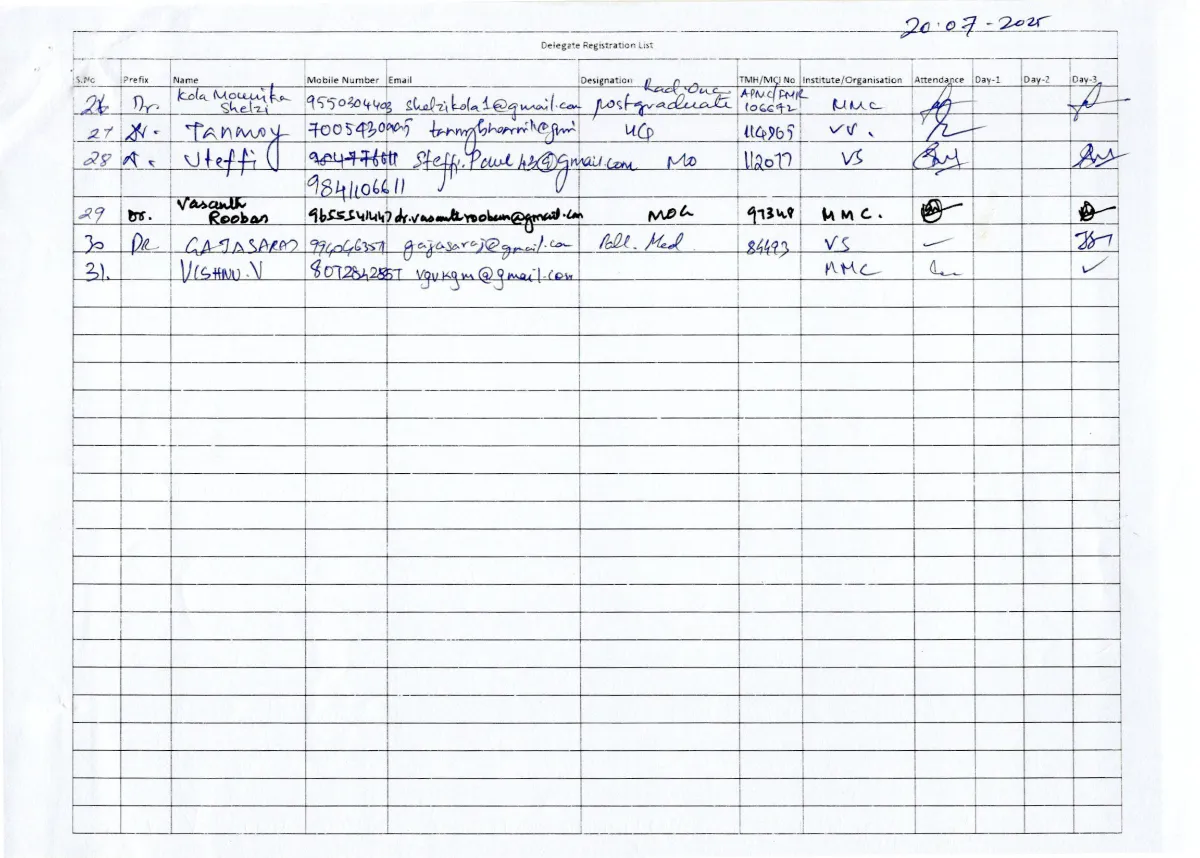 20.07-2025
Delegate Registration List
S.No Prefix Name Mobile Number Email Designation TMH/MCI No Institute/Organisation Attendance Day-1 Day-2 Day-3
26 Dr. Kola Mounika Shelzi 9550304403 shelzikola1@gmail.com Rad.Onc postgraduate APMC/FMR 106642 MMC
27 Dr. Tanmoy 114965 VS.
28 Steffi MO 112077 VS
9841106611
29 Dr. Vasanth Rooban 9655541447 dr.vasanthrooban@gmail.com 97348 MMC.
30 DR GAJASARAJ gajasaraj@gmail.com Pall. Med 84493 VS
31. VISHNU.V 8072842857 vgvkgm@gmail.com MMC